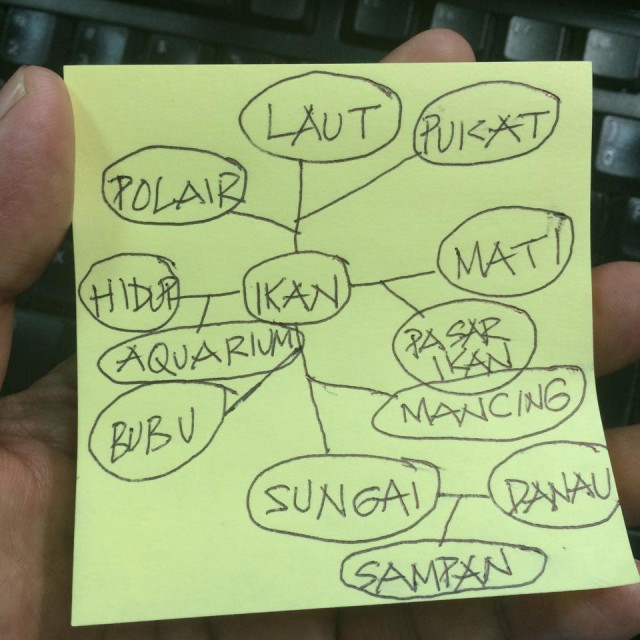 LAUT
PUKAT
POLAIR
MATI
HIDUP
IKAN
PASAR
IKAN
AQUARIUM
MANCING
BUBU
SUNGAI
DANAU
SAMPAN